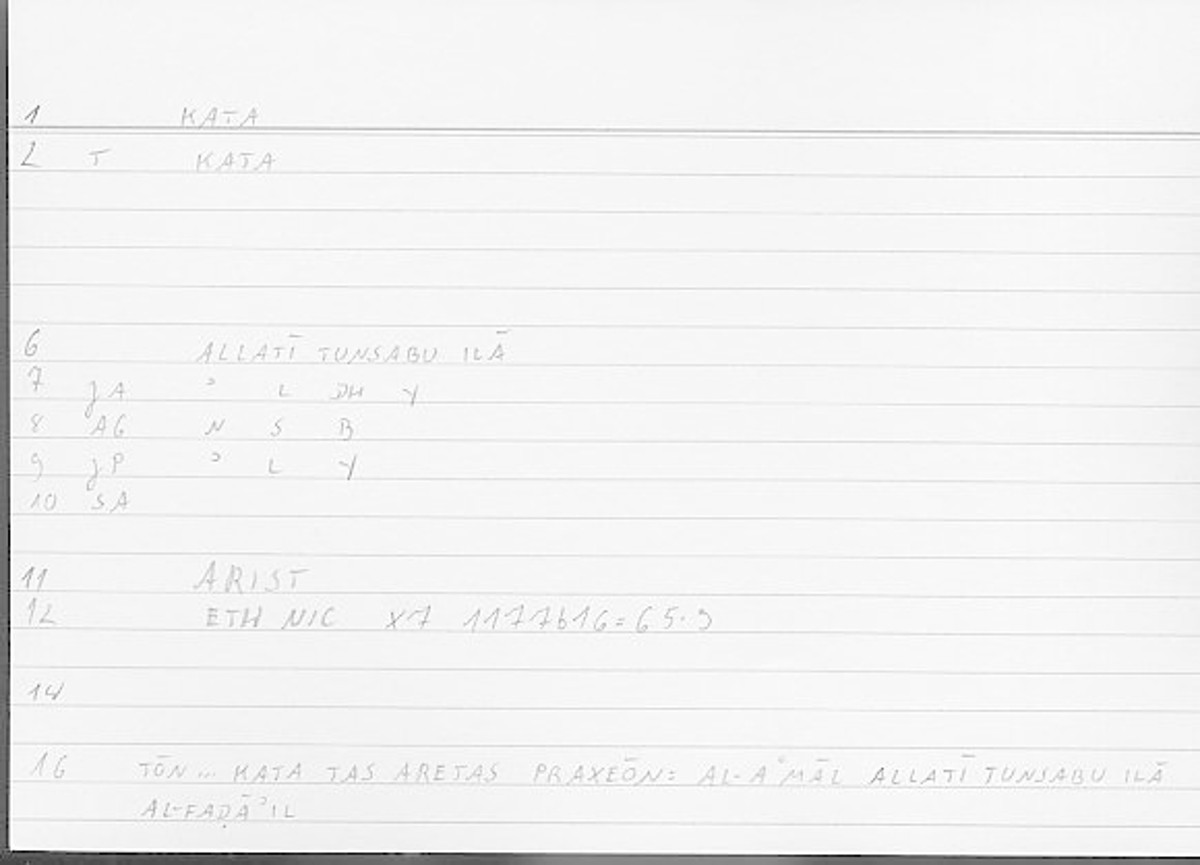 1 KATA
2 T KATA
6 ALLATĪ TUNSABU ILĀ
7 jA ʾ L DH Y
8 AG N S B
9 jP ʾ L Y
10 SA
11 ARIST
12 ETH NIC X7 1177b16=65.9
14
16 TŌN... KATA TAS ARETAS PRAXEŌN: AL-AʿMĀL ALLATĪ TUNSABU ILĀ
AL-FAḌĀʾIL